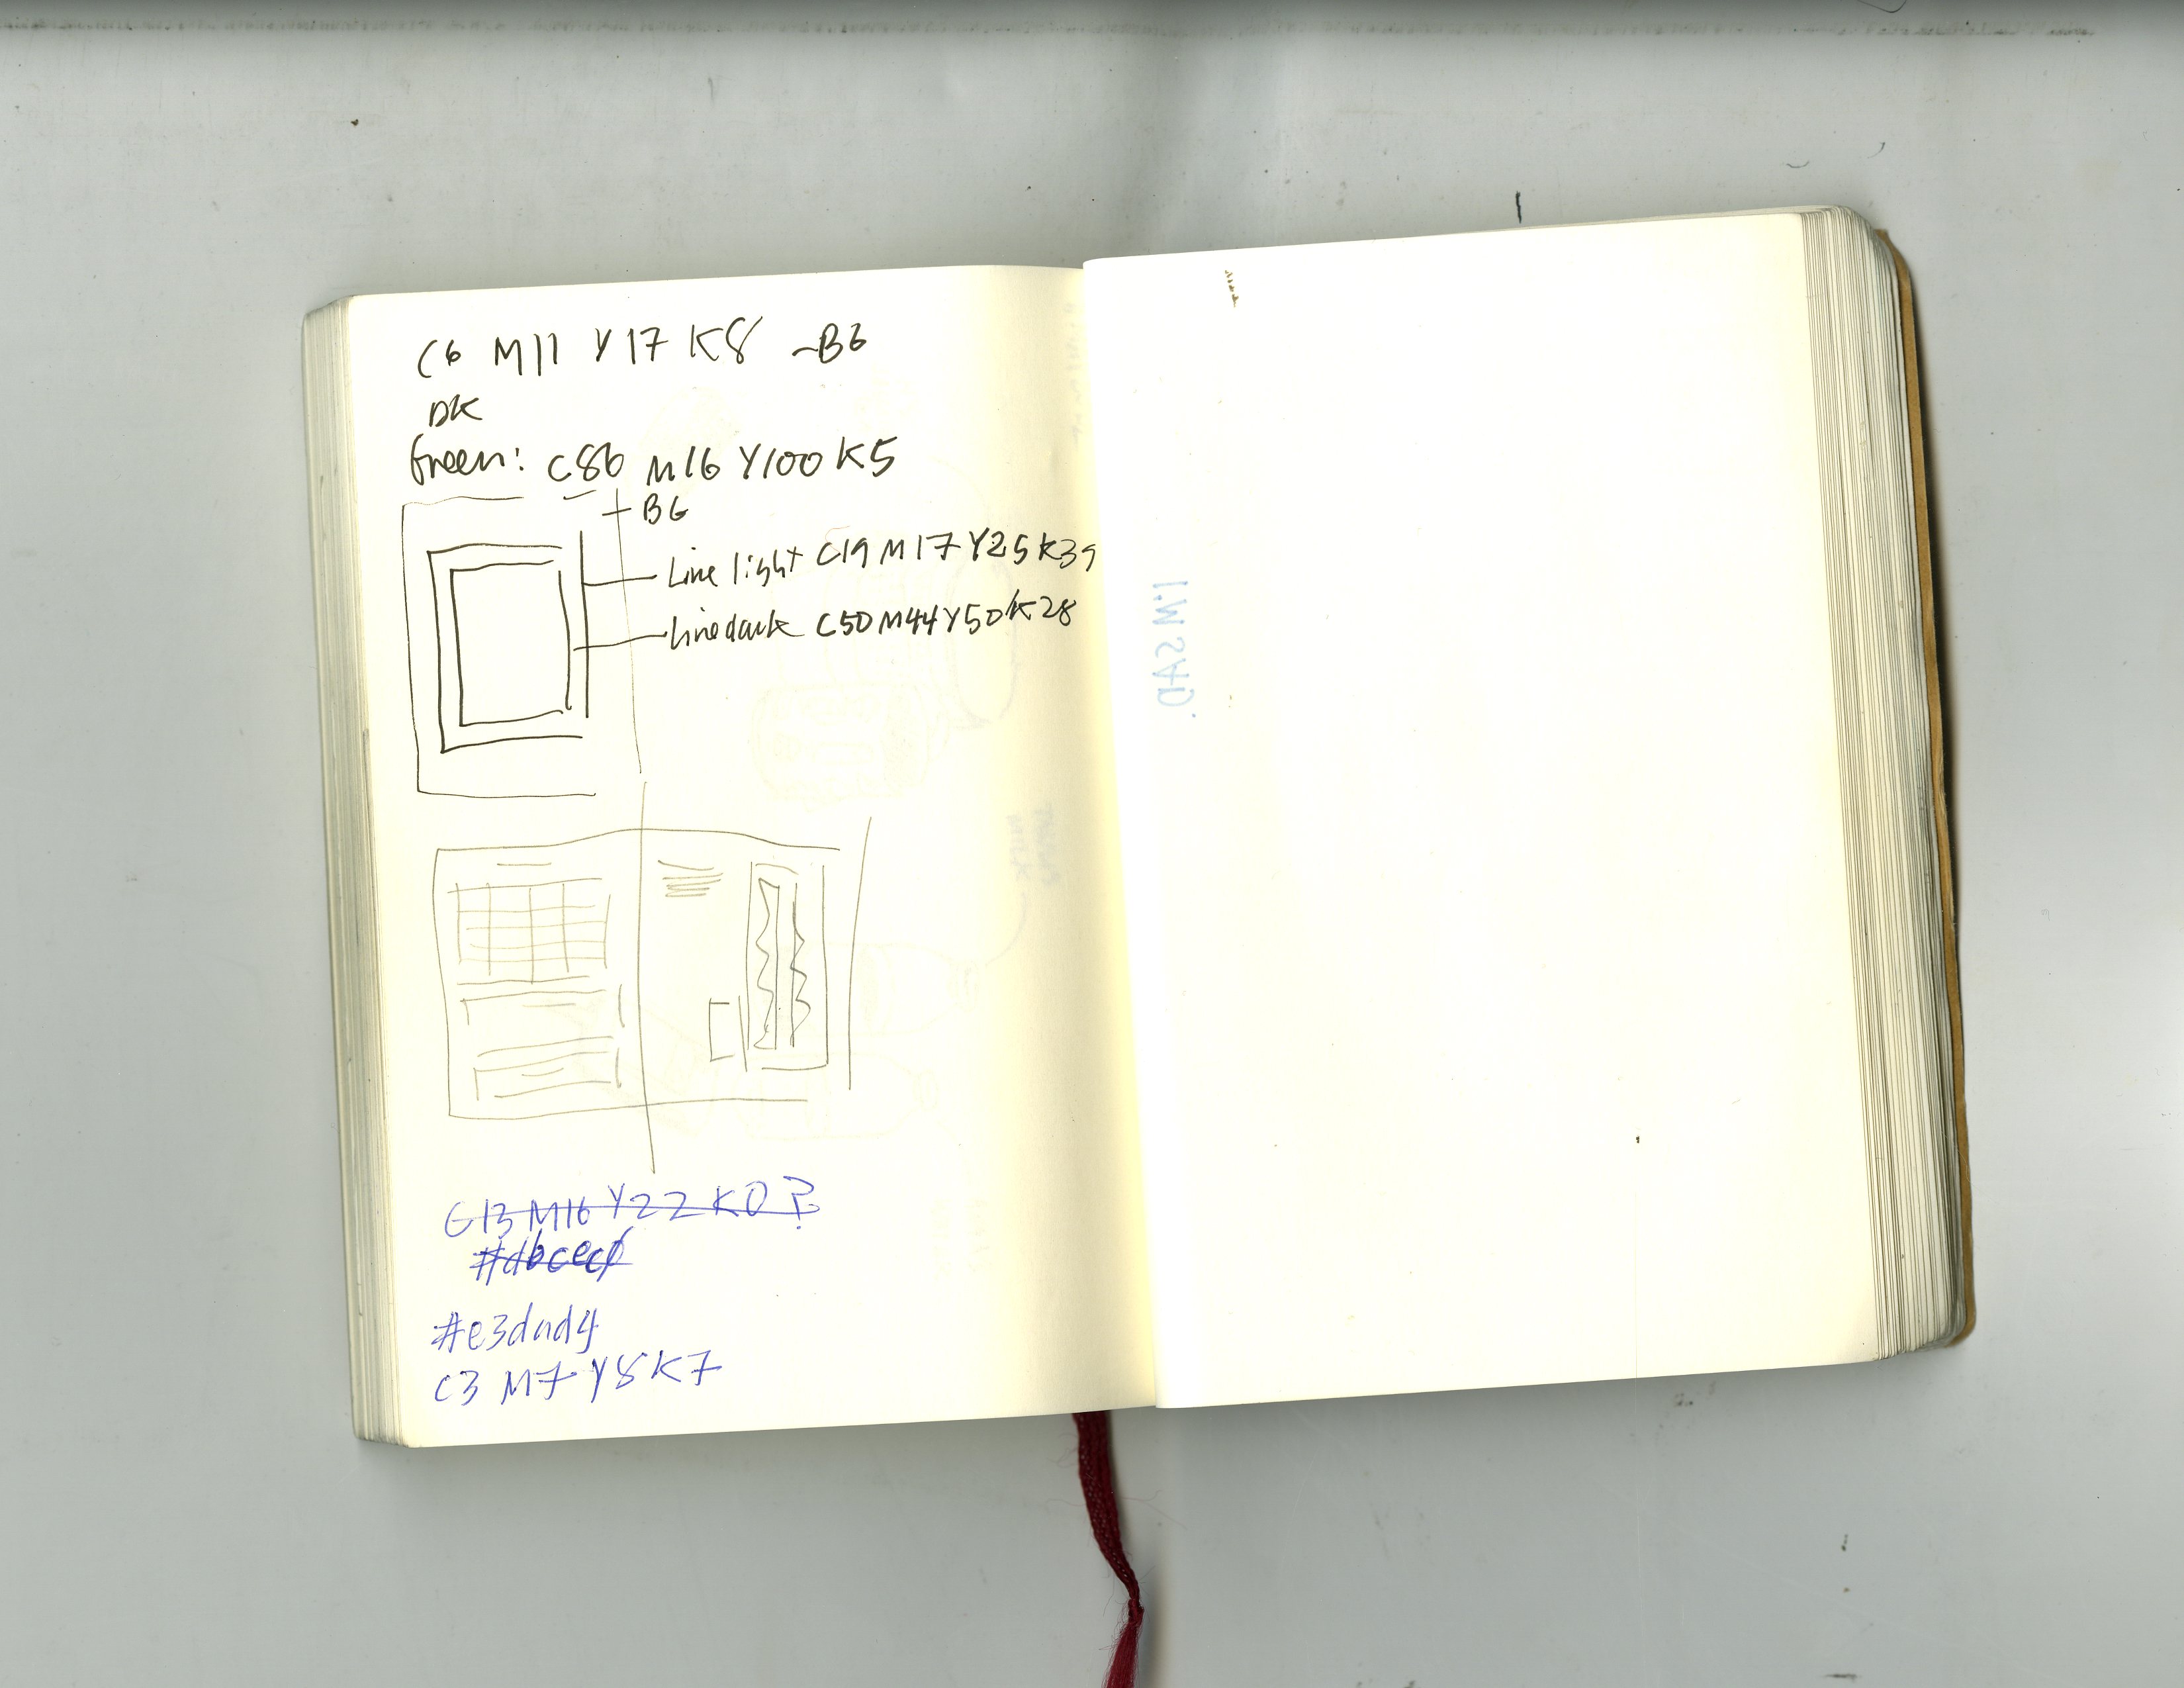 C6 M11 Y17 K8 ~BG
DK
Green: C86 M16 Y100 K5
BG
Line light C19 M17 Y25 K39
Line dark C50 M44 Y50 K28
C13 M16 Y22 K0 ?
#e3dad4
C3 M7 Y8 K7
I.M SAD.